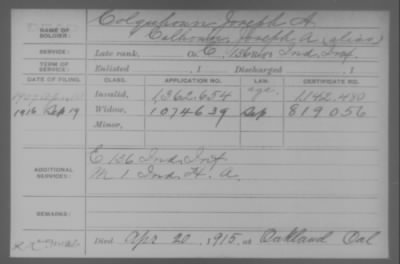 NAME OF SOLDIER: Colquhoun, Joseph A.
Calhoun, Joseph A (alias)
SERVICE: Late rank, Co. E, 136 Ind. Inf.
TERM OF SERVICE: Enlisted , 1 Discharged , 1
DATE OF FILING. CLASS. APPLICATION NO. CERTIFICATE NO.
1907 Invalid, 1,362,654 1,142,480
1916 Sep 19 Widow, 1074639 819056
Minor,
ADDITIONAL SERVICES: E 136 Ind. Inf.
M 1 Ind. H. A.
REMARKS:
Died Apr 20, 1915, at Oakland Cal